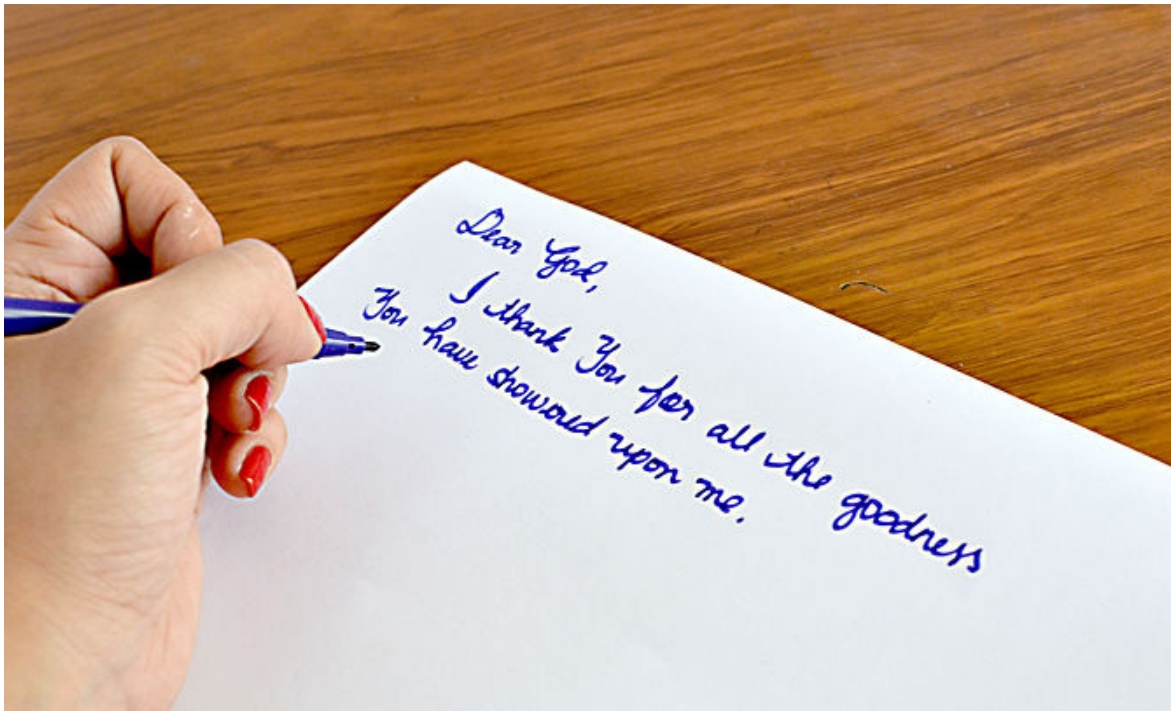 Dear God,
I thank You for all the goodness
You have showered upon me.